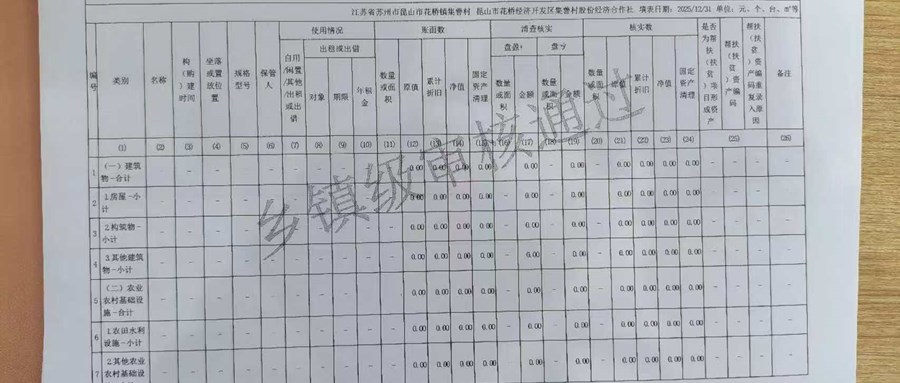 江苏省苏州市昆山市花桥镇集善村 昆山市花桥经济开发区集善村股份经济合作社 填表日期: 2025/12/31 单位: 元、个、台、㎡等
编号 类别 名称 构(购)建时间 坐落或置放位置 规格型号 保管人 使用情况 账面数 清查核实 核实数 是否为帮扶(扶贫)项目形成资产 帮扶(扶贫)资产编码 帮扶(扶贫)资产编码重复录入原因 备注
自用/闲置/其他/出租或出借 出租或出借 数量或面积 原值 累计折旧 净值 固定资产清理 盘盈: 盘亏: 数量或面积 原值 累计折旧 净值 固定资产清理
对象 期限 年租金 数量或面积 金额 数量或面积 金额
(1) (2) (3) (4) (5) (6) (7) (8) (9) (10) (11) (12) (13) (14) (15) (16) (17) (18) (19) (20) (21) (22) (23) (24) (25) (26)
1 (一)建筑物-合计 - - - - - - - - - - 0.00 0.00 0.00 0.00 - 0.00 - 0.00 - 0.00 0.00 0.00 0.00 - - - -
2 1.房屋-小计 - - - - - - - - - - 0.00 0.00 0.00 0.00 - 0.00 - 0.00 - 0.00 0.00 0.00 0.00 - - - -
3 2.构筑物-小计 - - - - - - - - - - 0.00 0.00 0.00 0.00 - 0.00 - 0.00 - 0.00 0.00 0.00 0.00 - - - -
4 3.其他建筑物-小计 - - - - - - - - - - 0.00 0.00 0.00 0.00 - 0.00 - 0.00 - 0.00 0.00 0.00 0.00 - - - -
5 (二)农业农村基础设施-合计 - - - - - - - - - - 0.00 0.00 0.00 0.00 - 0.00 - 0.00 - 0.00 0.00 0.00 0.00 - - - -
6 1.农田水利设施-小计 - - - - - - - - - - 0.00 0.00 0.00 0.00 - 0.00 - 0.00 - 0.00 0.00 0.00 0.00 - - - -
7 2.其他农业农村基础设 - - - - - - - - - - 0.00 0.00 0.00 0.00 - 0.00 - 0.00 - 0.00 0.00 0.00 0.00 - - - -
乡镇级审核通过